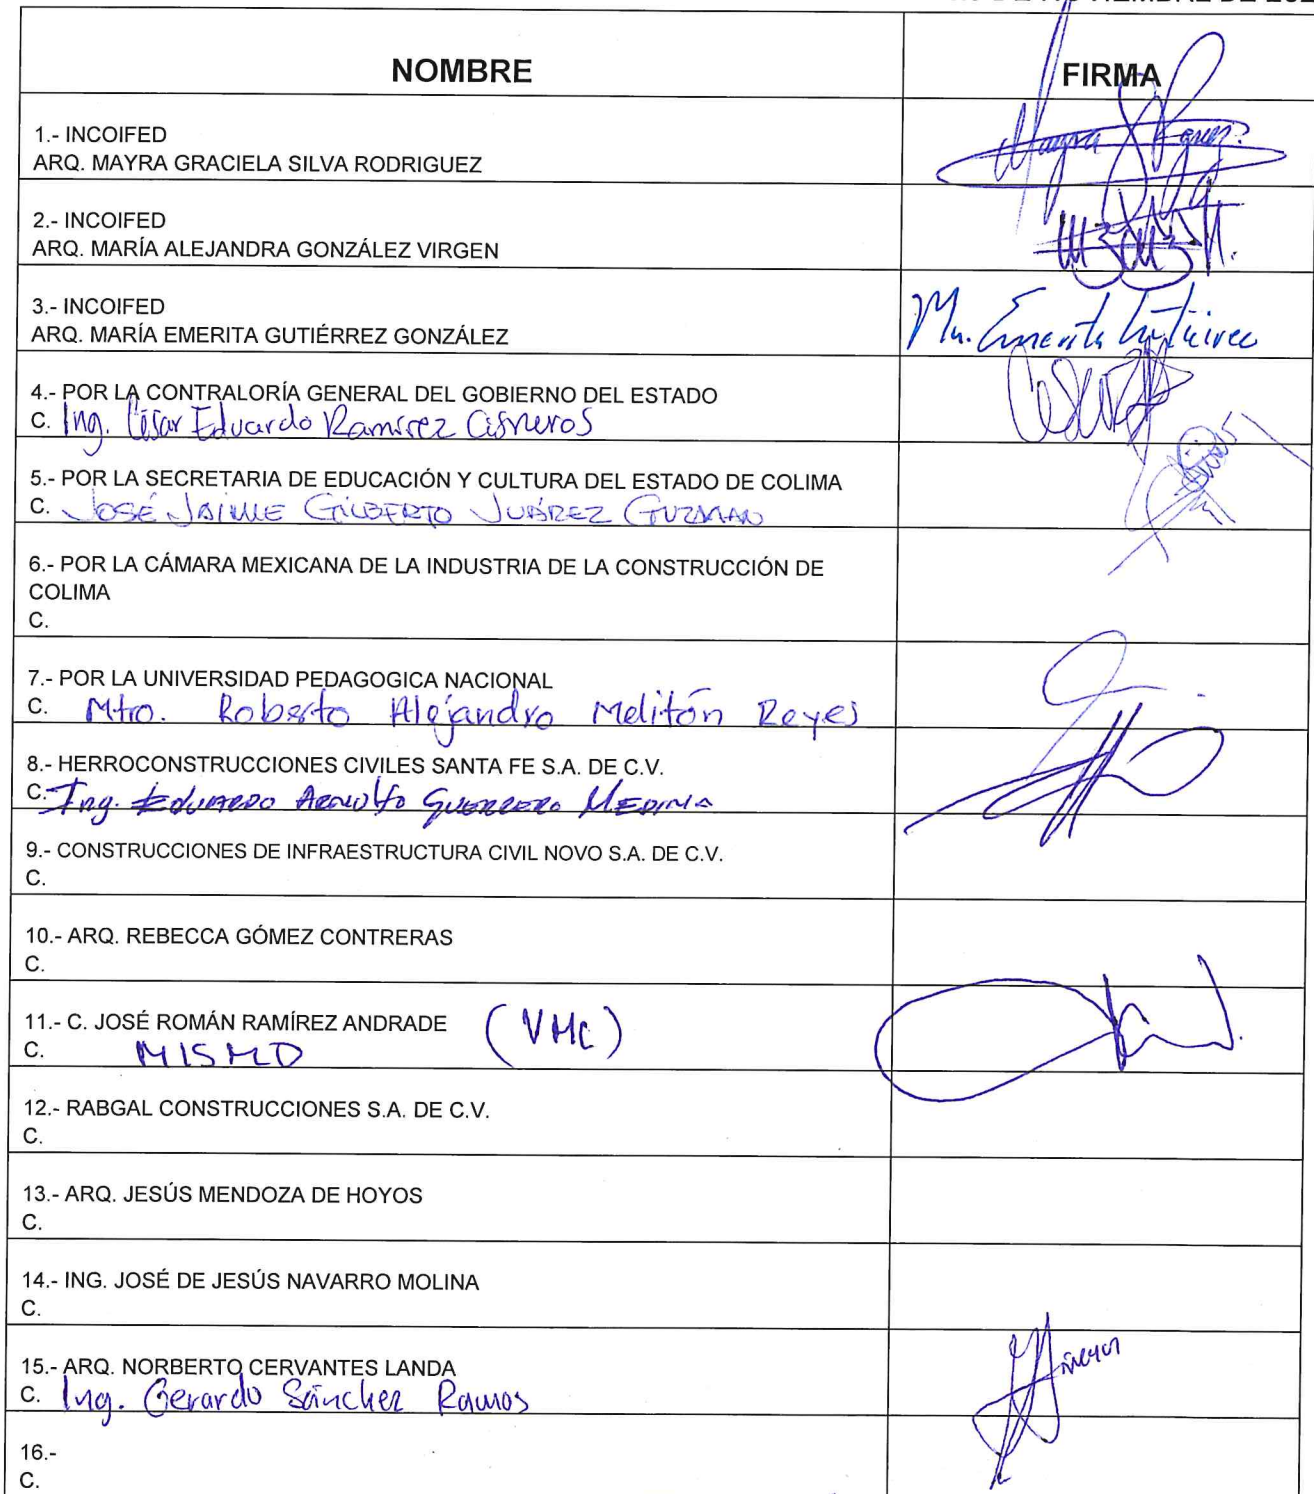 NOMBRE
FIRMA
1.- INCOIFED
ARQ. MAYRA GRACIELA SILVA RODRIGUEZ
2.- INCOIFED
ARQ. MARÍA ALEJANDRA GONZÁLEZ VIRGEN
3.- INCOIFED
ARQ. MARÍA EMERITA GUTIÉRREZ GONZÁLEZ
Ma. Emerita Gutiérrez
4.- POR LA CONTRALORÍA GENERAL DEL GOBIERNO DEL ESTADO
C. Ing. César Eduardo Ramírez Cisneros
5.- POR LA SECRETARIA DE EDUCACIÓN Y CULTURA DEL ESTADO DE COLIMA
C. JOSÉ JAIME GILBERTO JUÁREZ GUZMAN
6.- POR LA CÁMARA MEXICANA DE LA INDUSTRIA DE LA CONSTRUCCIÓN DE
COLIMA
C.
7.- POR LA UNIVERSIDAD PEDAGOGICA NACIONAL
C. Mtro. Roberto Alejandro Melitón Reyes
8.- HERROCONSTRUCCIONES CIVILES SANTA FE S.A. DE C.V.
C. Ing. EDUARDO ARNULFO GUERRERO MEDINA
9.- CONSTRUCCIONES DE INFRAESTRUCTURA CIVIL NOVO S.A. DE C.V.
C.
10.- ARQ. REBECCA GÓMEZ CONTRERAS
C.
11.- C. JOSÉ ROMÁN RAMÍREZ ANDRADE (VMC)
C. MISMO
12.- RABGAL CONSTRUCCIONES S.A. DE C.V.
C.
13.- ARQ. JESÚS MENDOZA DE HOYOS
C.
14.- ING. JOSÉ DE JESÚS NAVARRO MOLINA
C.
15.- ARQ. NORBERTO CERVANTES LANDA
C. Ing. Gerardo Sánchez Ramos
16.-
C.